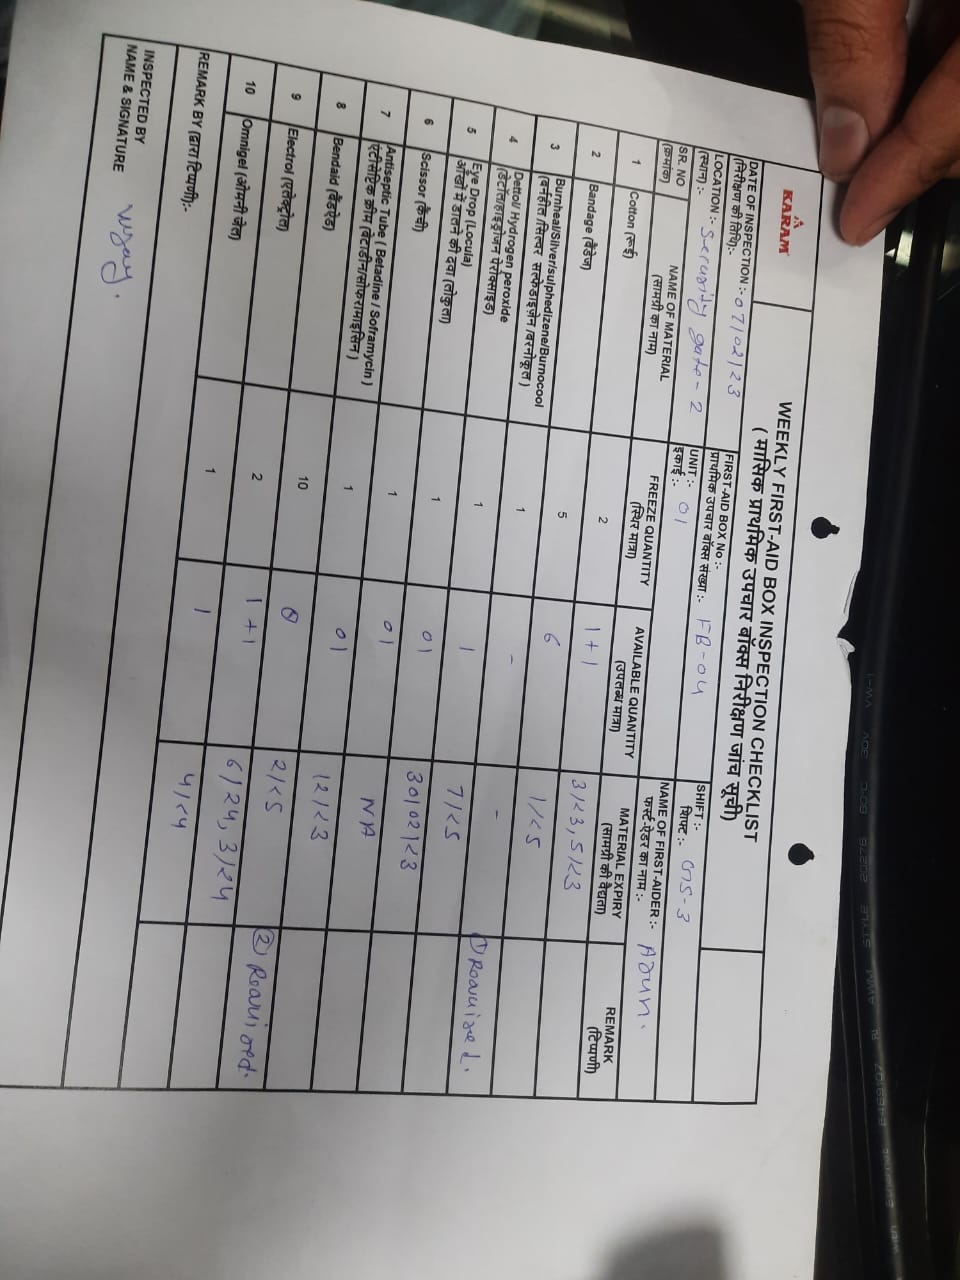 KARAM
WEEKLY FIRST-AID BOX INSPECTION CHECKLIST
( मासिक प्राथमिक उपचार बॉक्स निरीक्षण जांच सूची)
DATE OF INSPECTION :- 07/02/23
(निरीक्षण की तिथि):-
FIRST-AID BOX No :-
प्राथमिक उपचार बॉक्स संख्या :- FB-04
SHIFT :-
शिफ्ट :- GS-3
LOCATION :- Security gate-2
(स्थान) :-
UNIT :-
इकाई :- 01
NAME OF FIRST-AIDER :- Arun.
फर्स्ट-ऐडर का नाम :-
SR. NO (क्रमांक) NAME OF MATERIAL (सामग्री का नाम) FREEZE QUANTITY (स्थिर मात्रा) AVAILABLE QUANTITY (उपलब्ध मात्रा) MATERIAL EXPIRY (सामग्री की वैद्यता) REMARK (टिप्पणी)
1 Cotton (रूई) 2 1+1 3/23, 5/23
2 Bandage (बैंडेज) 5 6 1/25
3 Burnheal/Silver/sulphedizene/Burnocool 1 - - ① Required.
(बर्नहील /सिल्वर सल्फेडाइज़ेन /बरनोकूल )
4 Dettol/ Hydrogen peroxide 1 1 7/25
(डेटॉल/हाइड्रोजन पेरोक्साइड)
5 Eye Drop (Locula) 1 01 30/02/23
आँखों में डालने की दवा (लोकुला)
6 Scissor (कैंची) 1 01 NA
7 Antiseptic Tube ( Betadine / Soframycin ) 1 01 12/23
एंटीसेप्टिक क्रीम (बेटाडीन/सोफरामाइसिन )
8 Bendaid (बैंडऐड) 10 0 2/25 ② Required.
9 Electrol (एलेक्ट्रोल) 2 1+1 6/24, 3/24
10 Omnigel (ओमनी जेल) 1 1 4/24
REMARK BY (द्वारा टिप्पणी):-
INSPECTED BY
NAME & SIGNATURE Vijay.